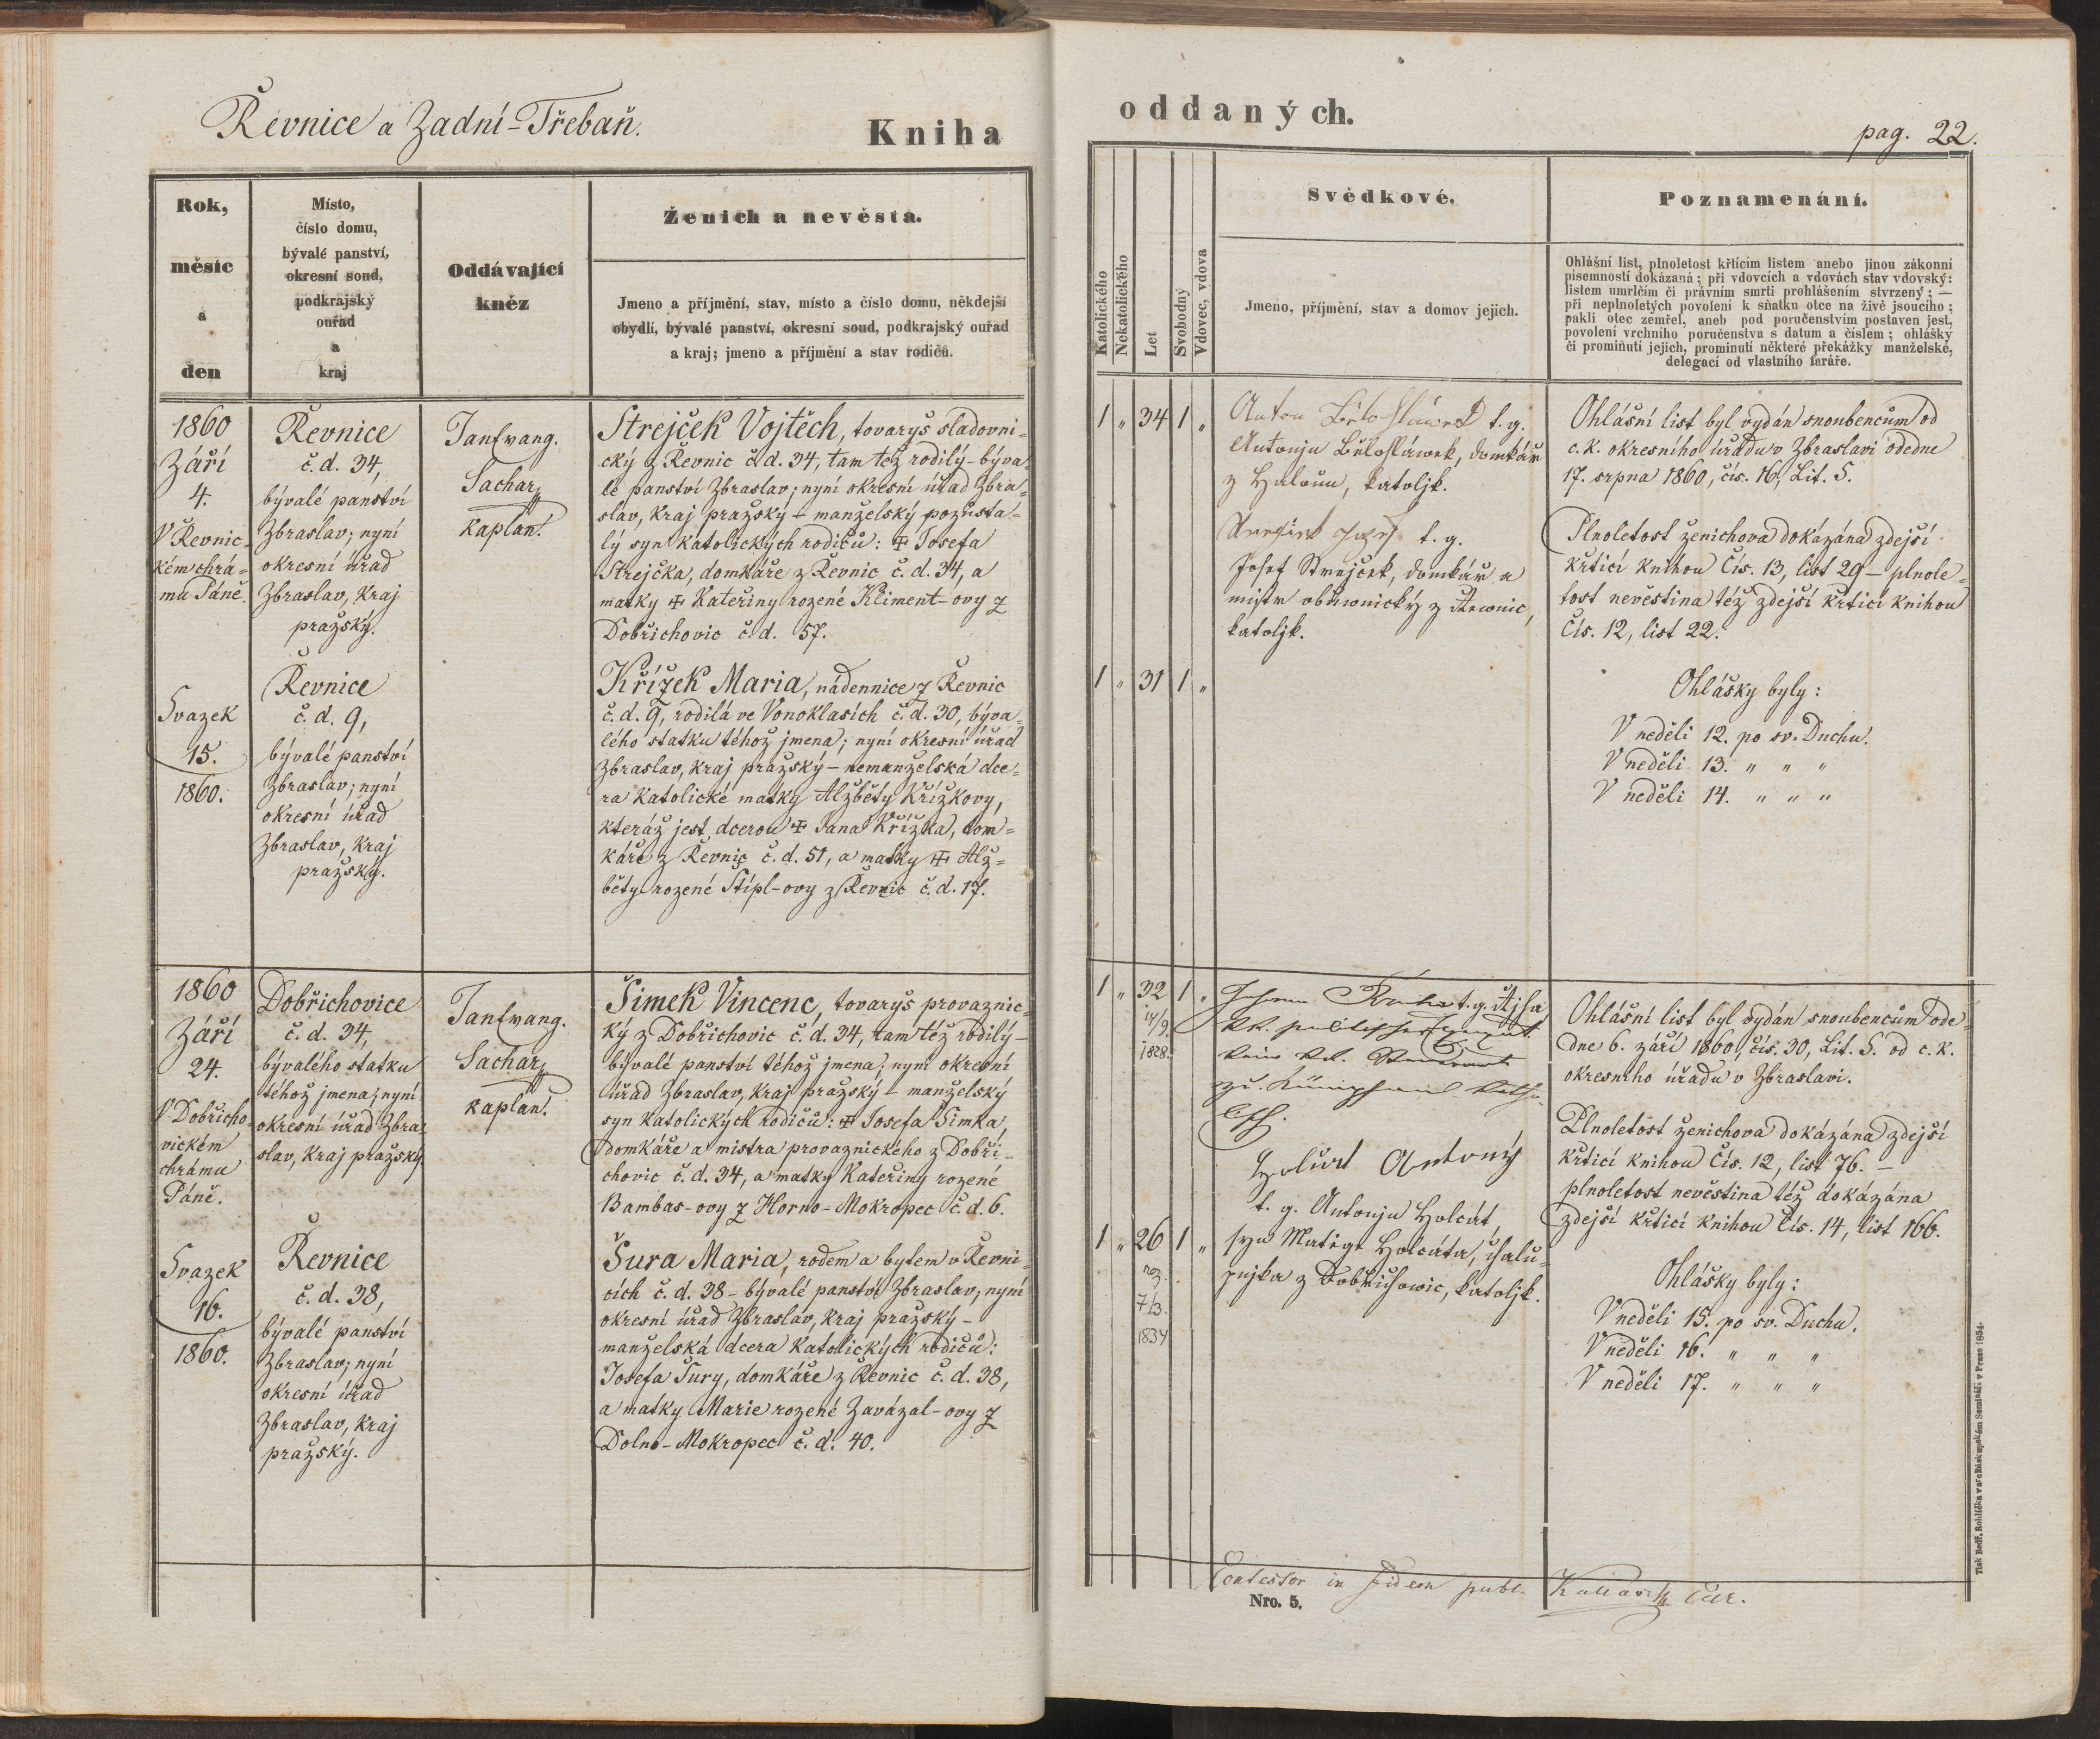 Řevnice a Zadní-Třebaň.
Kniha
Rok,
měsíc
a
den
Místo,
číslo domu,
bývalé panství,
okresní soud,
podkrajský
ouřad
a
kraj
Oddávající
kněz
Ženich a nevěsta.
Jmeno a příjmění, stav, místo a číslo domu, někdejší
obydlí, bývalé panství, okresní soud, podkrajský ouřad
a kraj; jmeno a příjmění a stav rodičů.
1860
Září
4.
V Řevnic-
kém chrá-
mu Páně.
Svazek
15.
1860.
Řevnice
č. d. 34,
bývalé panství
Zbraslav; nyní
okresní úřad
Zbraslav, kraj
pražský.
Řevnice
č. d. 9,
bývalé panství
Zbraslav; nyní
okresní úřad
Zbraslav, kraj
pražský.
Jan Evang.
Sachar,
kaplan.
Strejček Vojtěch, tovaryš sladovni-
cký z Řevnic č. d. 34, tam též rodilý - býva-
lé panství Zbraslav; nyní okresní úřad Zbra-
slav, kraj pražský - manželský pozůsta-
lý syn katolických rodičů: ✠ Josefa
Strejčka, domkáře z Řevnic č. d. 34, a
matky ✠ Kateřiny rozené Kliment-ovy z
Dobřichovic č. d. 57.
Křížek Maria, nádennice z Řevnic
č. d. 9, rodilá ve Vonoklasích č. d. 30, býva-
lého statku téhož jmena; nyní okresní úřad
Zbraslav, kraj pražský - nemanželská dce-
ra katolické matky Alžběty Křížkovy,
kteráž jest dcerou ✠ Jana Křížka, dom-
káře z Řevnic č. d. 51, a matky ✠ Alž-
běty rozené Štípl-ovy z Řevnic č. d. 17.
1860
Září
24.
V Dobřicho-
vickém
chrámu
Páně.
Svazek
16.
1860.
Dobřichovice
č. d. 34,
bývalého statku
téhož jmena; nyní
okresní úřad Zbra-
slav, kraj pražský.
Řevnice
č. d. 38,
bývalé panství
Zbraslav; nyní
okresní úřad
Zbraslav, kraj
pražský.
Jan Evang.
Sachar,
kaplan.
Šimek Vincenc, tovaryš provaznic-
ký z Dobřichovic č. d. 34, tam též rodilý -
bývalé panství téhož jmena; nyní okresní
úřad Zbraslav, kraj pražský - manželský
syn katolických rodičů: ✠ Josefa Šimka,
domkáře a mistra provaznického z Dobři-
chovic č. d. 34, a matky Kateřiny rozené
Bambas-ovy z Horno-Mokropec č. d. 6.
Šura Maria, rodem a bytem v Řevni-
cích č. d. 38 - bývalé panství Zbraslav; nyní
okresní úřad Zbraslav, kraj pražský -
manželská dcera katolických rodičů:
Josefa Šury, domkáře z Řevnic č. d. 38,
a matky Marie rozené Zavázal-ovy z
Dolno-Mokropec č. d. 40.
oddaných.
pag. 22.
Katolického
Nekatolického
Let
Svobodný
Vdovec, vdova
Svědkové.
Jmeno, příjmění, stav a domov jejich.
Poznamenání.
Ohlášní list, plnoletost křticím listem anebo jinou zákonní
písemností dokázaná; při vdovcích a vdovách stav vdovský:
listem umrlčím či právním smrti prohlášením stvrzený; —
při neplnoletých povolení k sňatku otce na živě jsoucího;
pakli otec zemřel, aneb pod poručenstvím postaven jest,
povolení vrchního poručenstva s datum a číslem; ohlášky
či prominutí jejich, prominutí některé překážky manželské,
delegací od vlastního faráře.
1 " 34 1 "
Anton Běloslávek t. g.
Antonjn Běloslávek, domkář
z Haloun, katoljk.
Josef t. g.
Josef Strejček, domkář a
mistr obuwnický z Řewnic,
katoljk.
Ohlášní list byl vydán snoubencům od
c. k. okresního úřadu v Zbraslavi odedne
17. srpna 1860, čís. 16, Lit. S.
Plnoletost ženichova dokázána zdejší
křticí knihou Čís. 13, list 29 - plnole-
tost nevěstina též zdejší křticí knihou
Čís. 12, list 22.
1 " 31 1 "
Ohlášky byly:
V neděli 12. po sv. Duchu.
V neděli 13. " " "
V neděli 14. " " "
1 " 32 1 "
14/9
1828.
t. g.
kk. politischer
Holcát Antoný
t. g. Antonjn Holcát,
syn Matěge Holcáta, chalu-
pnjka z Dobřichowic, katoljk.
Ohlášní list byl vydán snoubencům ode-
dne 6. září 1860, čís. 30, Lit. S. od c. k.
okresního úřadu v Zbraslavi.
Plnoletost ženichova dokázána zdejší
křticí knihou Čís. 12, list 76. -
plnoletost nevěstina též dokázána
zdejší křticí knihou Čís. 14, list 166.
1 " 26 1 "
nar.
7/3.
1834
Ohlášky byly:
V neděli 15. po sv. Duchu.
V neděli 16. " " "
V neděli 17. " " "
Contestor in fidem publ.
Nro. 5.
Tisk Bedř. Rohlíčka v arcibiskupském Semináři v Praze 1854.